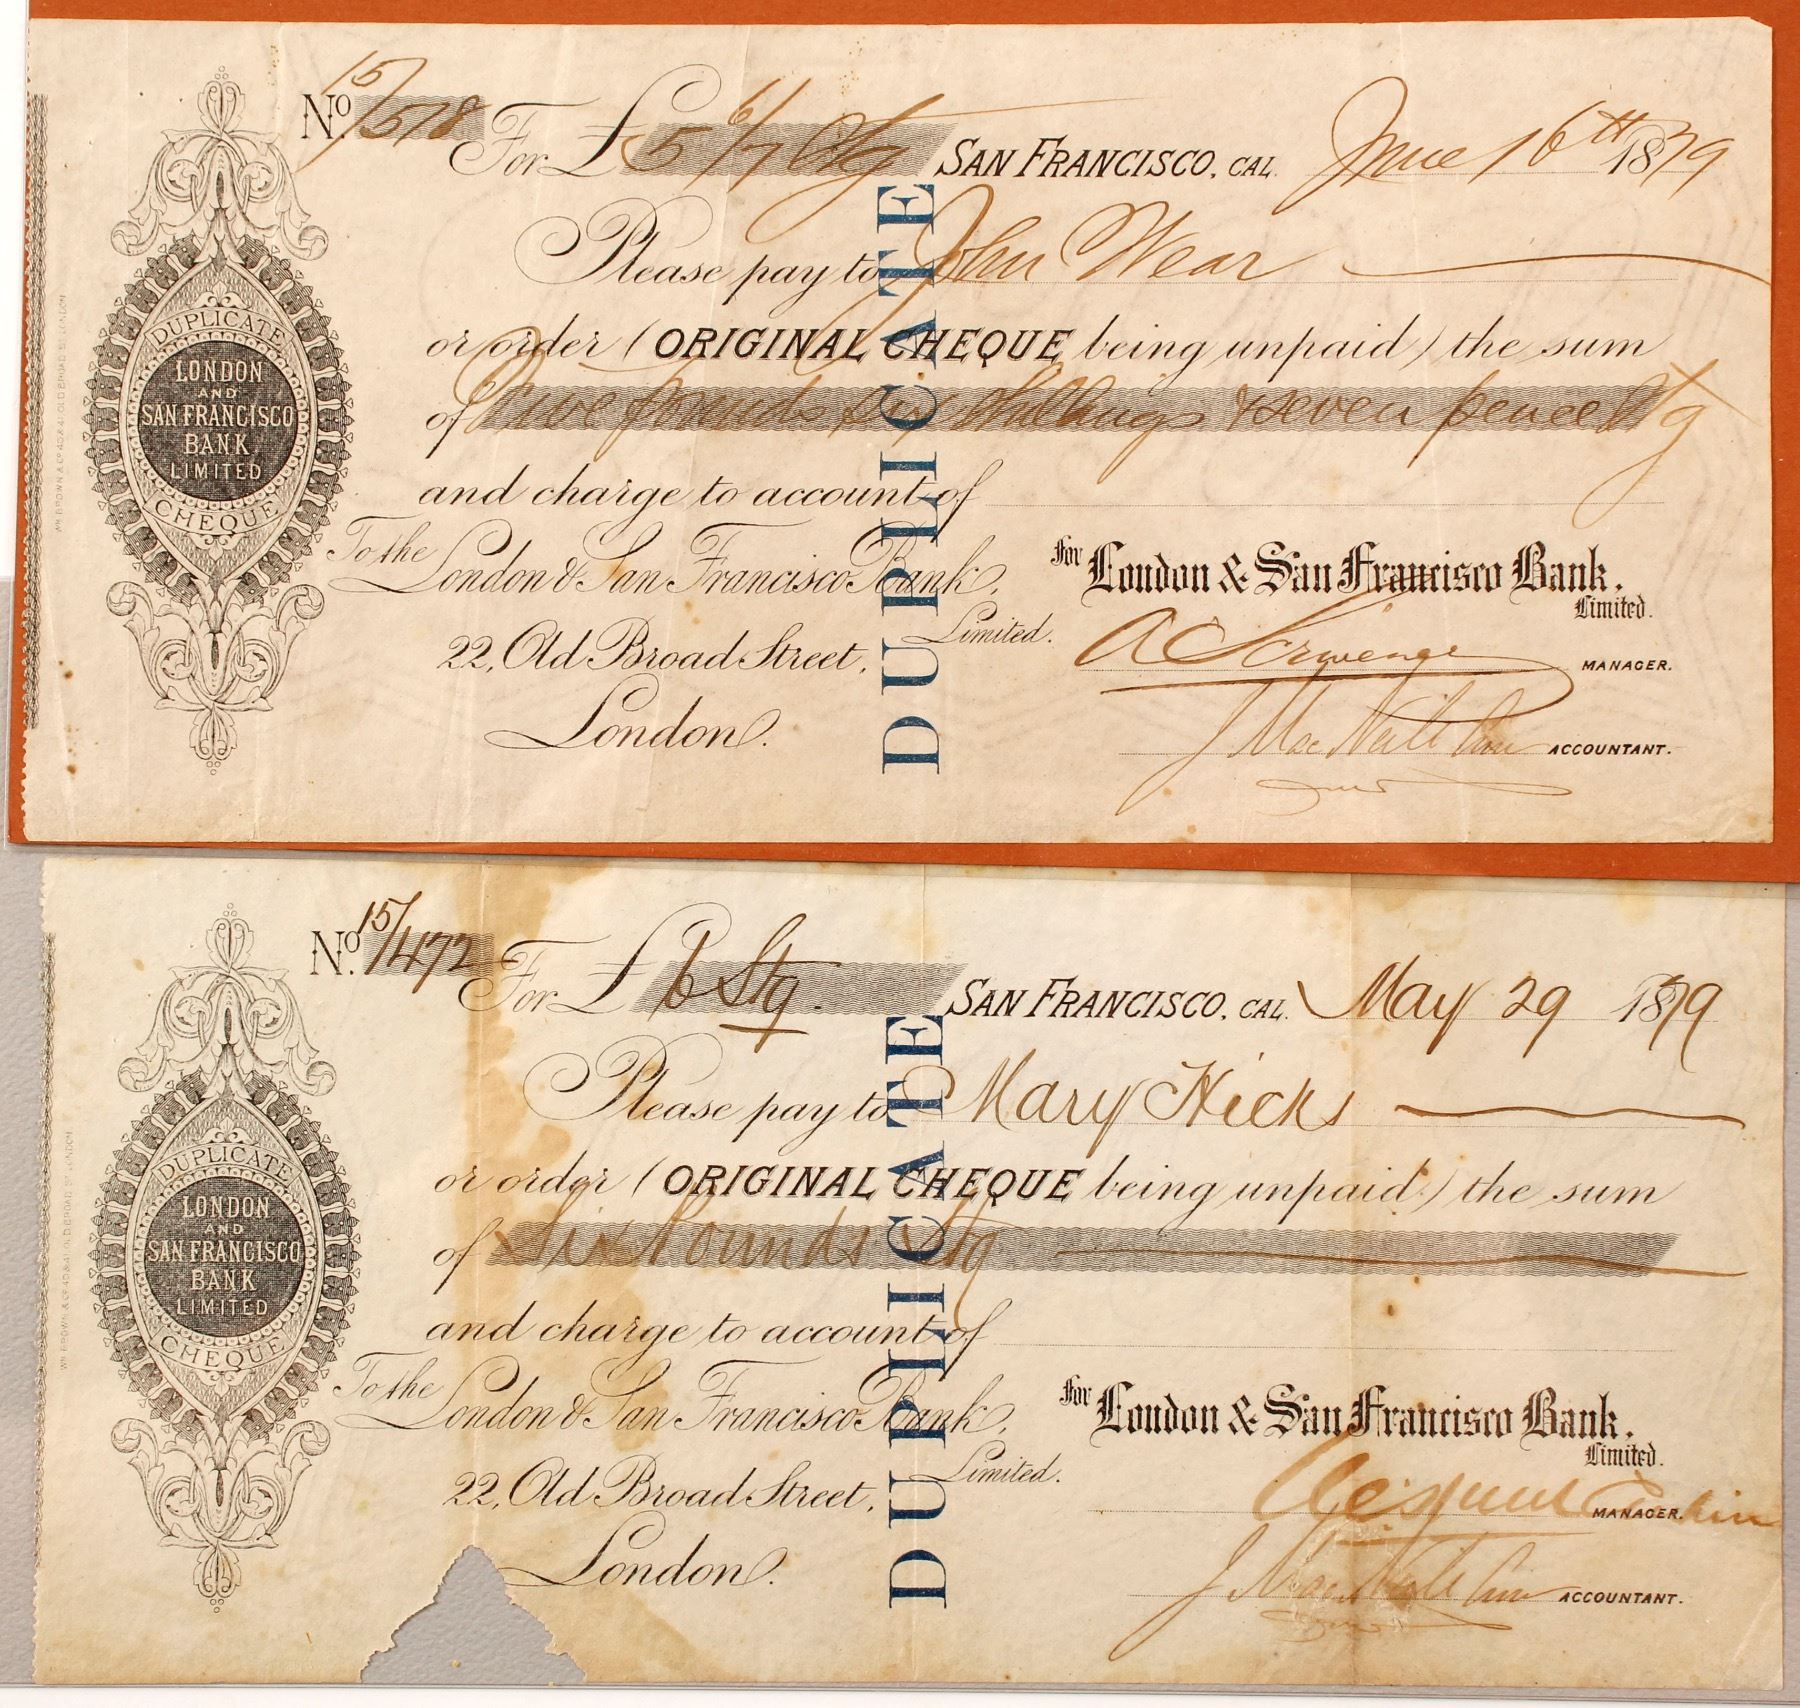 No 15/578 For £ 5 6/7 Stg SAN FRANCISCO, CAL. June 16th 1879
Please pay to John Wear
or order (ORIGINAL CHEQUE being unpaid) the sum
of Five pounds six shillings & seven pence Stg
and charge to account of
To the London & San Francisco Bank,
Limited.
22, Old Broad Street,
London.
For London & San Francisco Bank,
Limited.
MANAGER.
J MacNeill
ACCOUNTANT.
DUPLICATE
DUPLICATE
LONDON
AND
SAN FRANCISCO
BANK
LIMITED
CHEQUE
No. 15/472 For £ 6 Stg. SAN FRANCISCO, CAL. May 29 1879
Please pay to Mary Hicks
or order (ORIGINAL CHEQUE being unpaid.) the sum
of Six Pounds Stg
and charge to account of
To the London & San Francisco Bank,
Limited.
22, Old Broad Street,
London.
For London & San Francisco Bank,
Limited.
MANAGER.
J MacNeill
ACCOUNTANT.
DUPLICATE
DUPLICATE
LONDON
AND
SAN FRANCISCO
BANK
LIMITED
CHEQUE